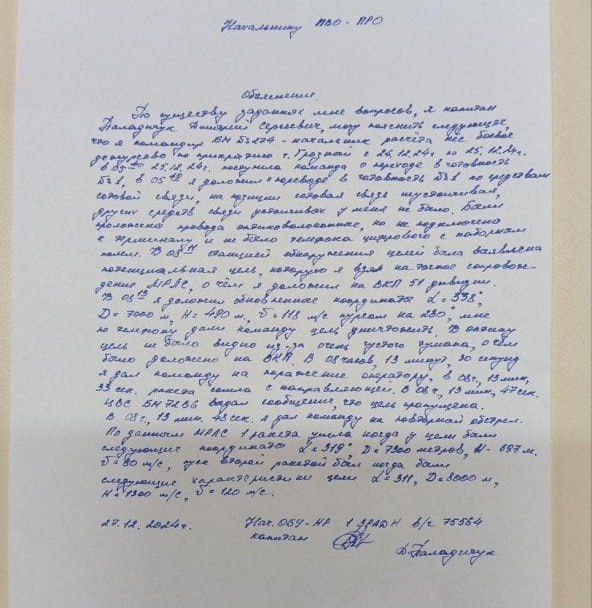 Начальнику ПВО-ПРО
Объяснение.
По существу заданных мне вопросов, я капитан
Паладичук Дмитрий Сергеевич, могу пояснить следующее,
что я командир БМ - начальник расчёта нёс боевое
дежурство по прикрытию г. Грозный с 26.12.24г. по 25.12.24г.
В 25.12.24г. поступила команда о переходе в готовность
№1, в 05 я доложил о переводе в готовность №1 по средствам
сотовой связи, на позиции сотовая связь неустойчивая,
других средств связи устойчивых у меня не было. Были
проложены провода оптоволоконные, но не подключены
к терминалу и не было телефона цифрового с наборным
полем. В 08 станцией обнаружения целей была выявлена
потенциальная цель, которую я взял на точное сопровож-
дение МРЛС, о чём я доложил на ВКП 51 дивизии.
В 08 13 я доложил обновленные координаты L= 338°,
D= 7000 м, H= 490 м, V= 113 м/с курсом на 230°, мне
по телефону дали команду цель уничтожить. В оптику
цель не было видно из-за очень густого тумана, о чём
было доложено на ВКП. В 08 часов, 13 минут, 30 секунд
я дал команду на поражение оператору, в 08ч, 13мин,
33 сек. ракета сошла с направляющей. В 08ч, 13 мин, 47сек.
ЦВС БМ 7236 выдал сообщение, что цель пропущена.
В 08ч. 13 мин. 48 сек. я дал команду на повторный обстрел.
По данным МРЛС 1 ракета ушла когда у цели были
следующие координаты L= 319°, D= 7300 метров, H- 697 м.
V= 90 м/с, пуск второй ракетой был когда были
следующие характеристики цели L= 311, D= 8000 м,
H= 1300 м/с, V= 120 м/с.
27.12.2024г. Нач. ОБУ-НР 1 ЗРАДН в/ч 75564
капитан Д. Паладичук